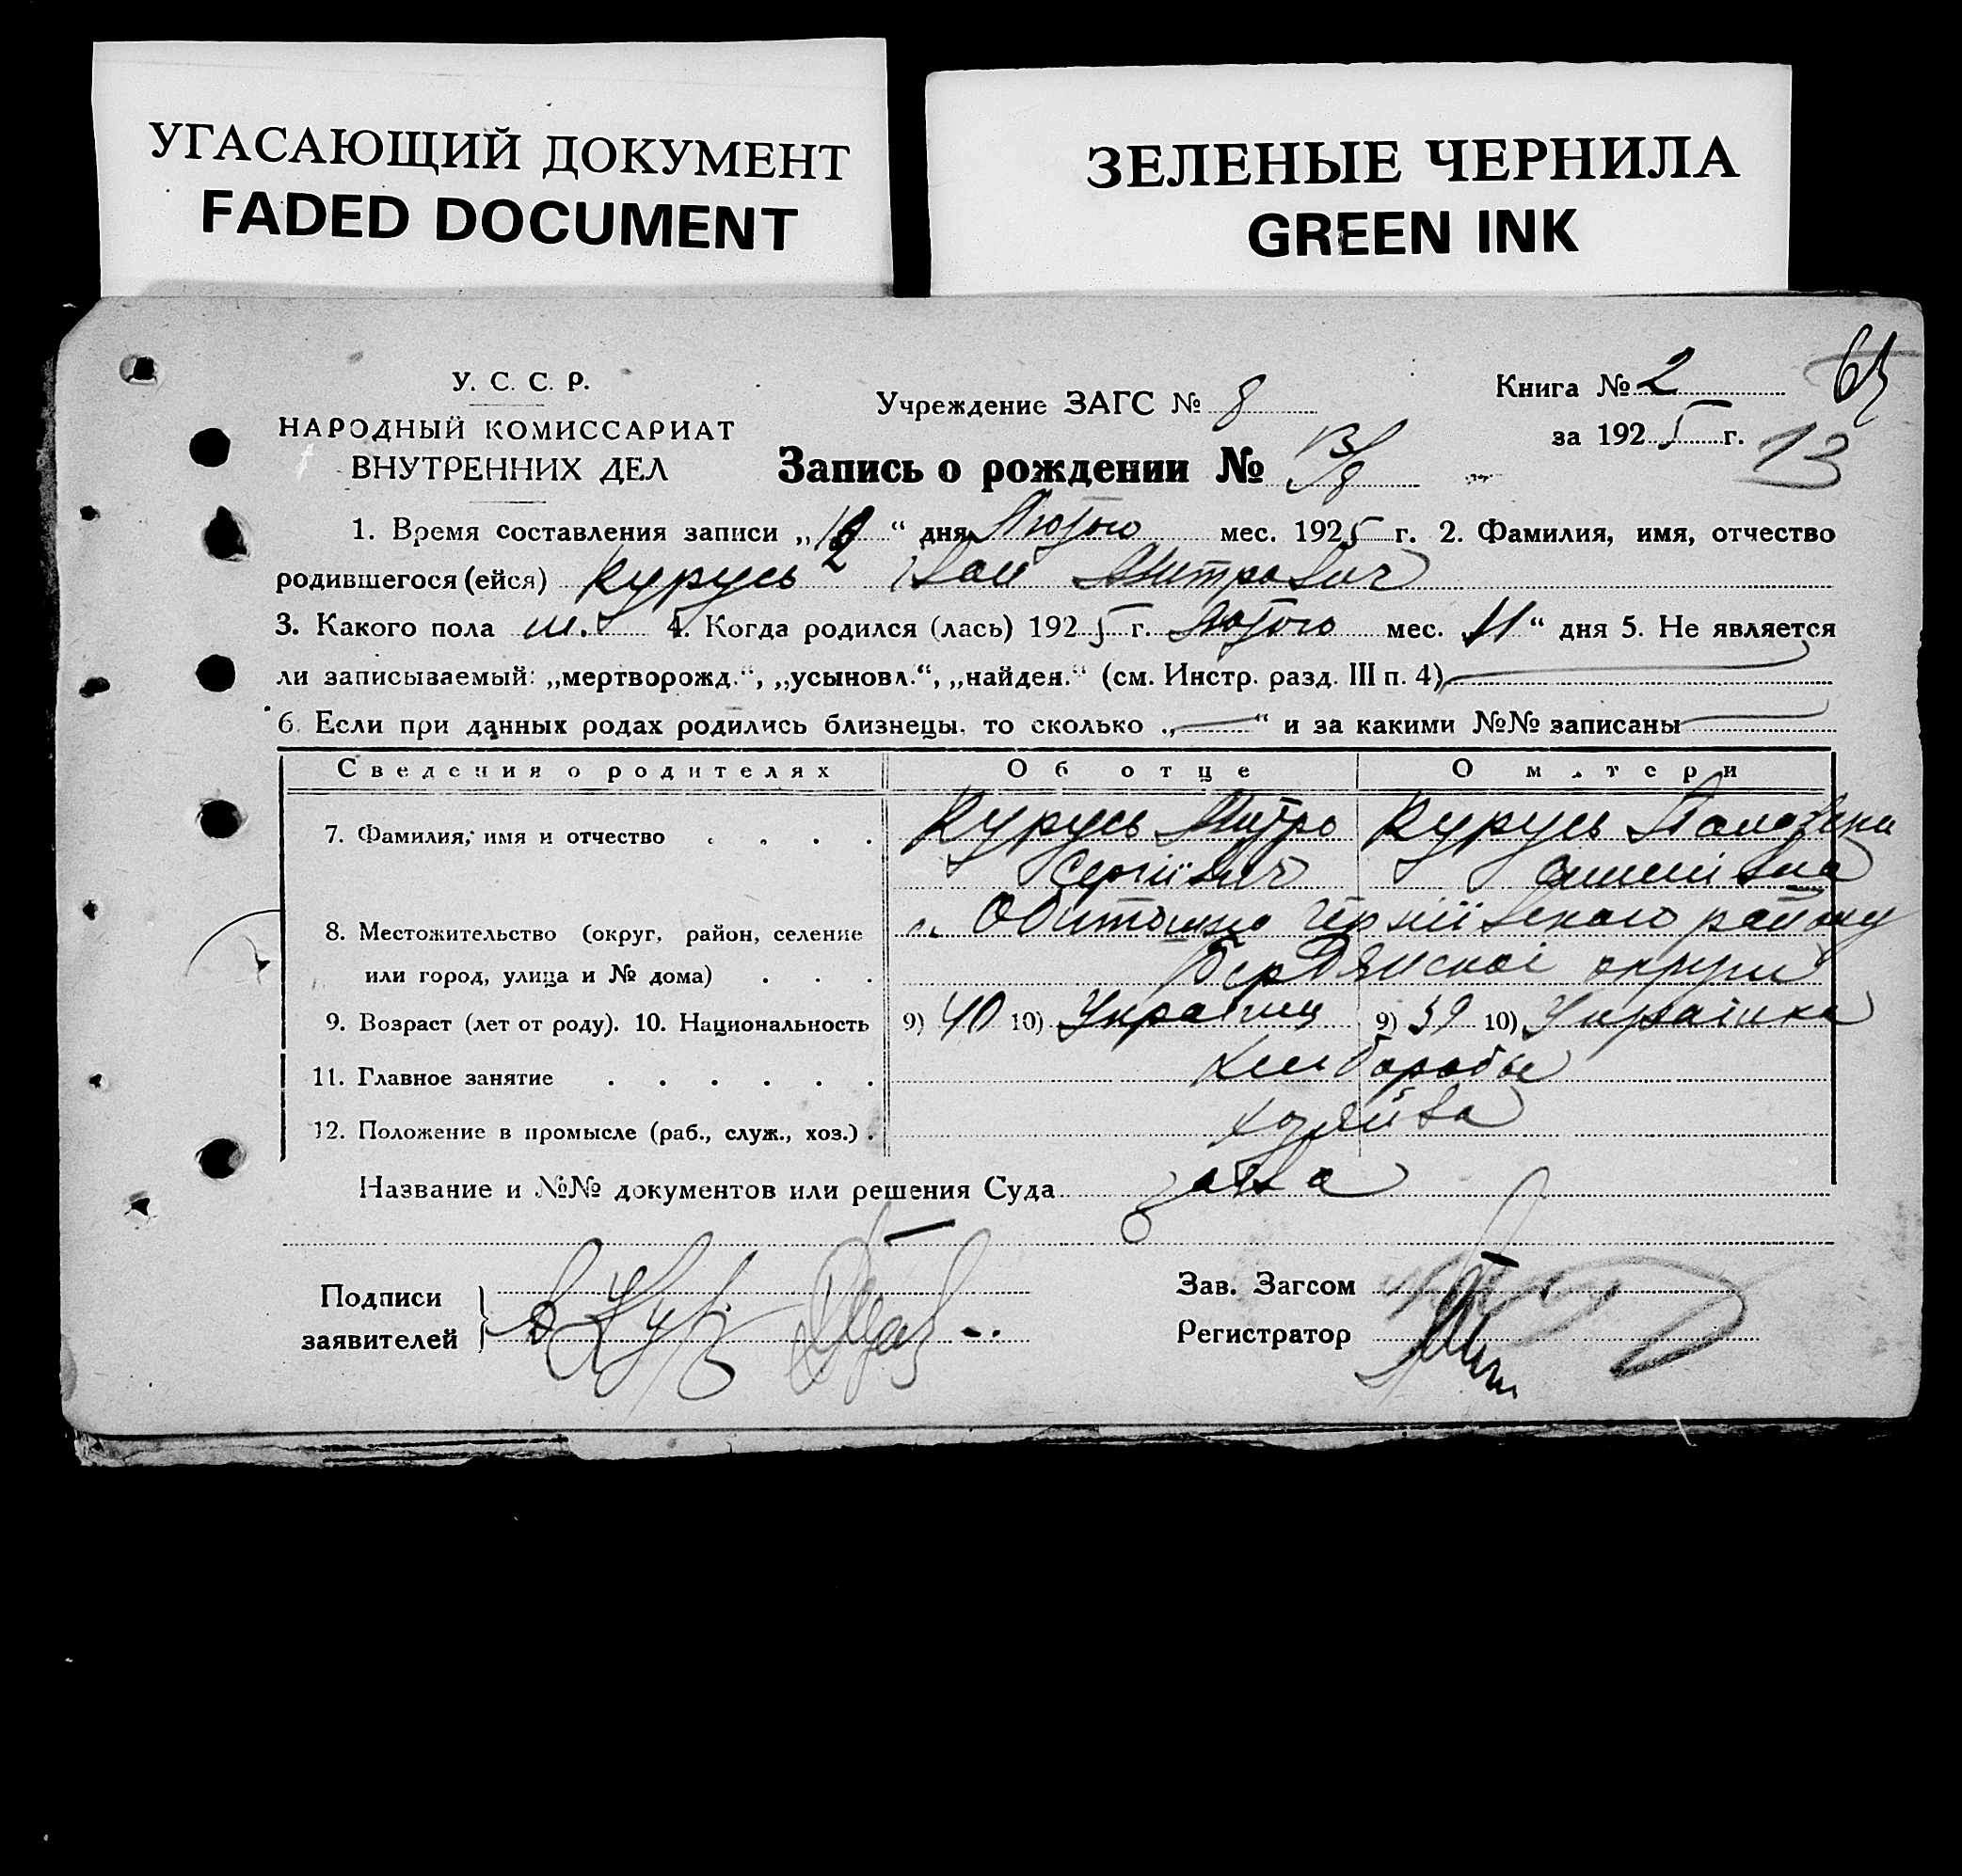 УГАСАЮЩИЙ ДОКУМЕНТ
FADED DOCUMENT
ЗЕЛЕНЫЕ ЧЕРНИЛА
GREEN INK
У. С. С. Р.
НАРОДНЫЙ КОМИССАРИАТ
ВНУТРЕННИХ ДЕЛ
Учреждение ЗАГС № 8
Книга № 2
за 1925 г.
13
Запись о рождении № 13/8
1. Время составления записи „12“ дня Лютого мес. 1925 г. 2. Фамилия, имя, отчество
родившегося (ейся) Курусь Іван Митрович
3. Какого пола ч. 4. Когда родился (лась) 1925 г. Лютого мес. 11“ дня 5. Не является
ли записываемый: „мертворожд.“, „усыновл.“, „найден.“ (см. Инстр. разд. III п. 4)
6. Если при данных родах родились близнецы, то сколько „—“ и за какими №№ записаны
Сведения о родителях Об отце О матери
7. Фамилия, имя и отчество Курусь Митро Курусь
Сергіївич
8. Местожительство (округ, район, селение с. Обиточно район
или город, улица и № дома) Бердянскої округи
9. Возраст (лет от роду). 10. Национальность 9) 40 10) Украінец 9) 39 10) Украінка
11. Главное занятие Хлибороби
12. Положение в промысле (раб., служ., хоз.) Хозяйва
Название и №№ документов или решения Суда заява
Подписи
заявителей
Зав. Загсом
Регистратор